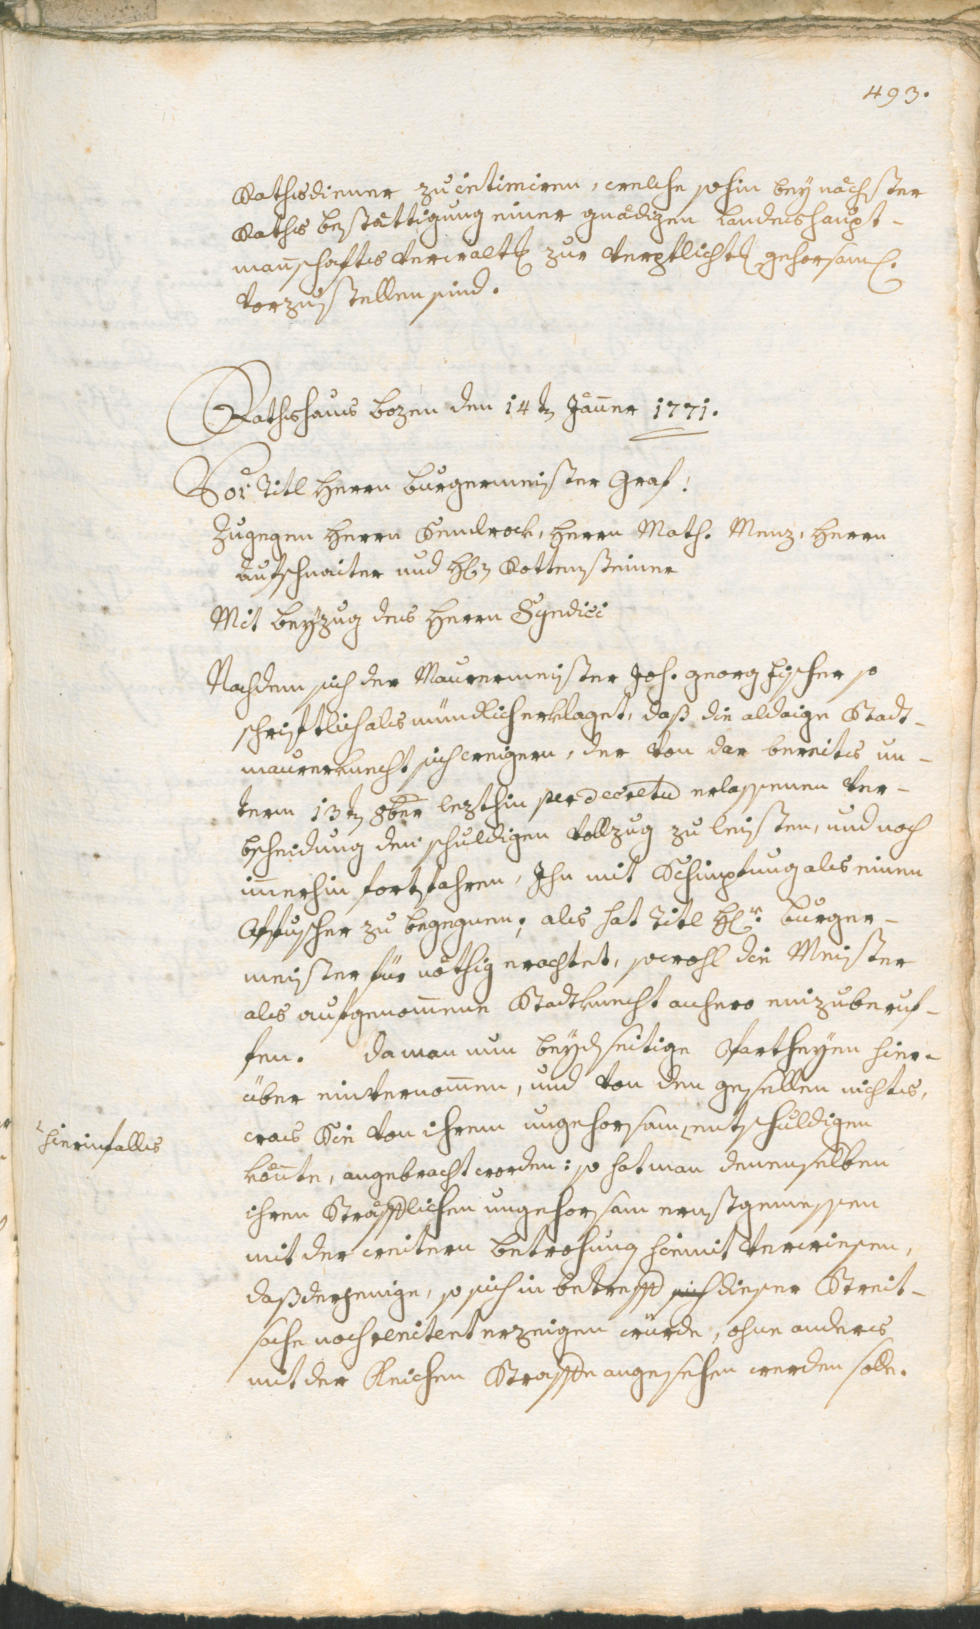 493.
Rathsdiener zu intimiren, welche sohin bey nächster
Raths bestättigung einer gnädigen Landeshaupt-
manschafts verwalt[un]g zur verpflicht[un]g gehorsaml.
vorzustellen sind.
Rathshaus Bozen den 14t[en] Jänner 1771.
Vor Titl Herrn Burgermeister Graf!
Zugegen Herrn Kendrock, Herrn Math. Menz, Herrn
aufschnaiter und H[err]n Rottensteiner
Mit beyzug des Herrn Syndici
Nachdem sich der Maurermeister Joh. georg Fischer so
schriftlich als mündlich erklaget, daß die aldaige Stadt-
maurerknecht sich weigern, der von dar bereits un-
term 13t[en] 8ber lezthin per decretu[m] erlassenen ver-
bscheidung den schuldigen vollzug zu leisten, und noch
immerhin fortfahren, Ihn mit Schimpfung als einen
Pfuscher zu begegnen; als hat Titl H[er]r burger-
meister für nöthig erachtet, sowohl die Meister
als aufgenomene Stadtknecht anhero einzuberuf-
fen. da man nun beydseitige Partheyen hier-
über einvernomen, und von den gesellen nichts,
was Sie von ihrem ungehorsam entschuldigen
hierinfalls
könte, angebracht worden: so hat man denenselben
ihren Sträfflichen ungehorsam ernstgemessen
mit der weitern betrohung hiemit verwiesen,
daß derjenige, so sich in betreff sich dieser Streit-
sache noch renitent erzeigen würde, ohne anders
mit der Reichen Straffe angesehen werden solle.